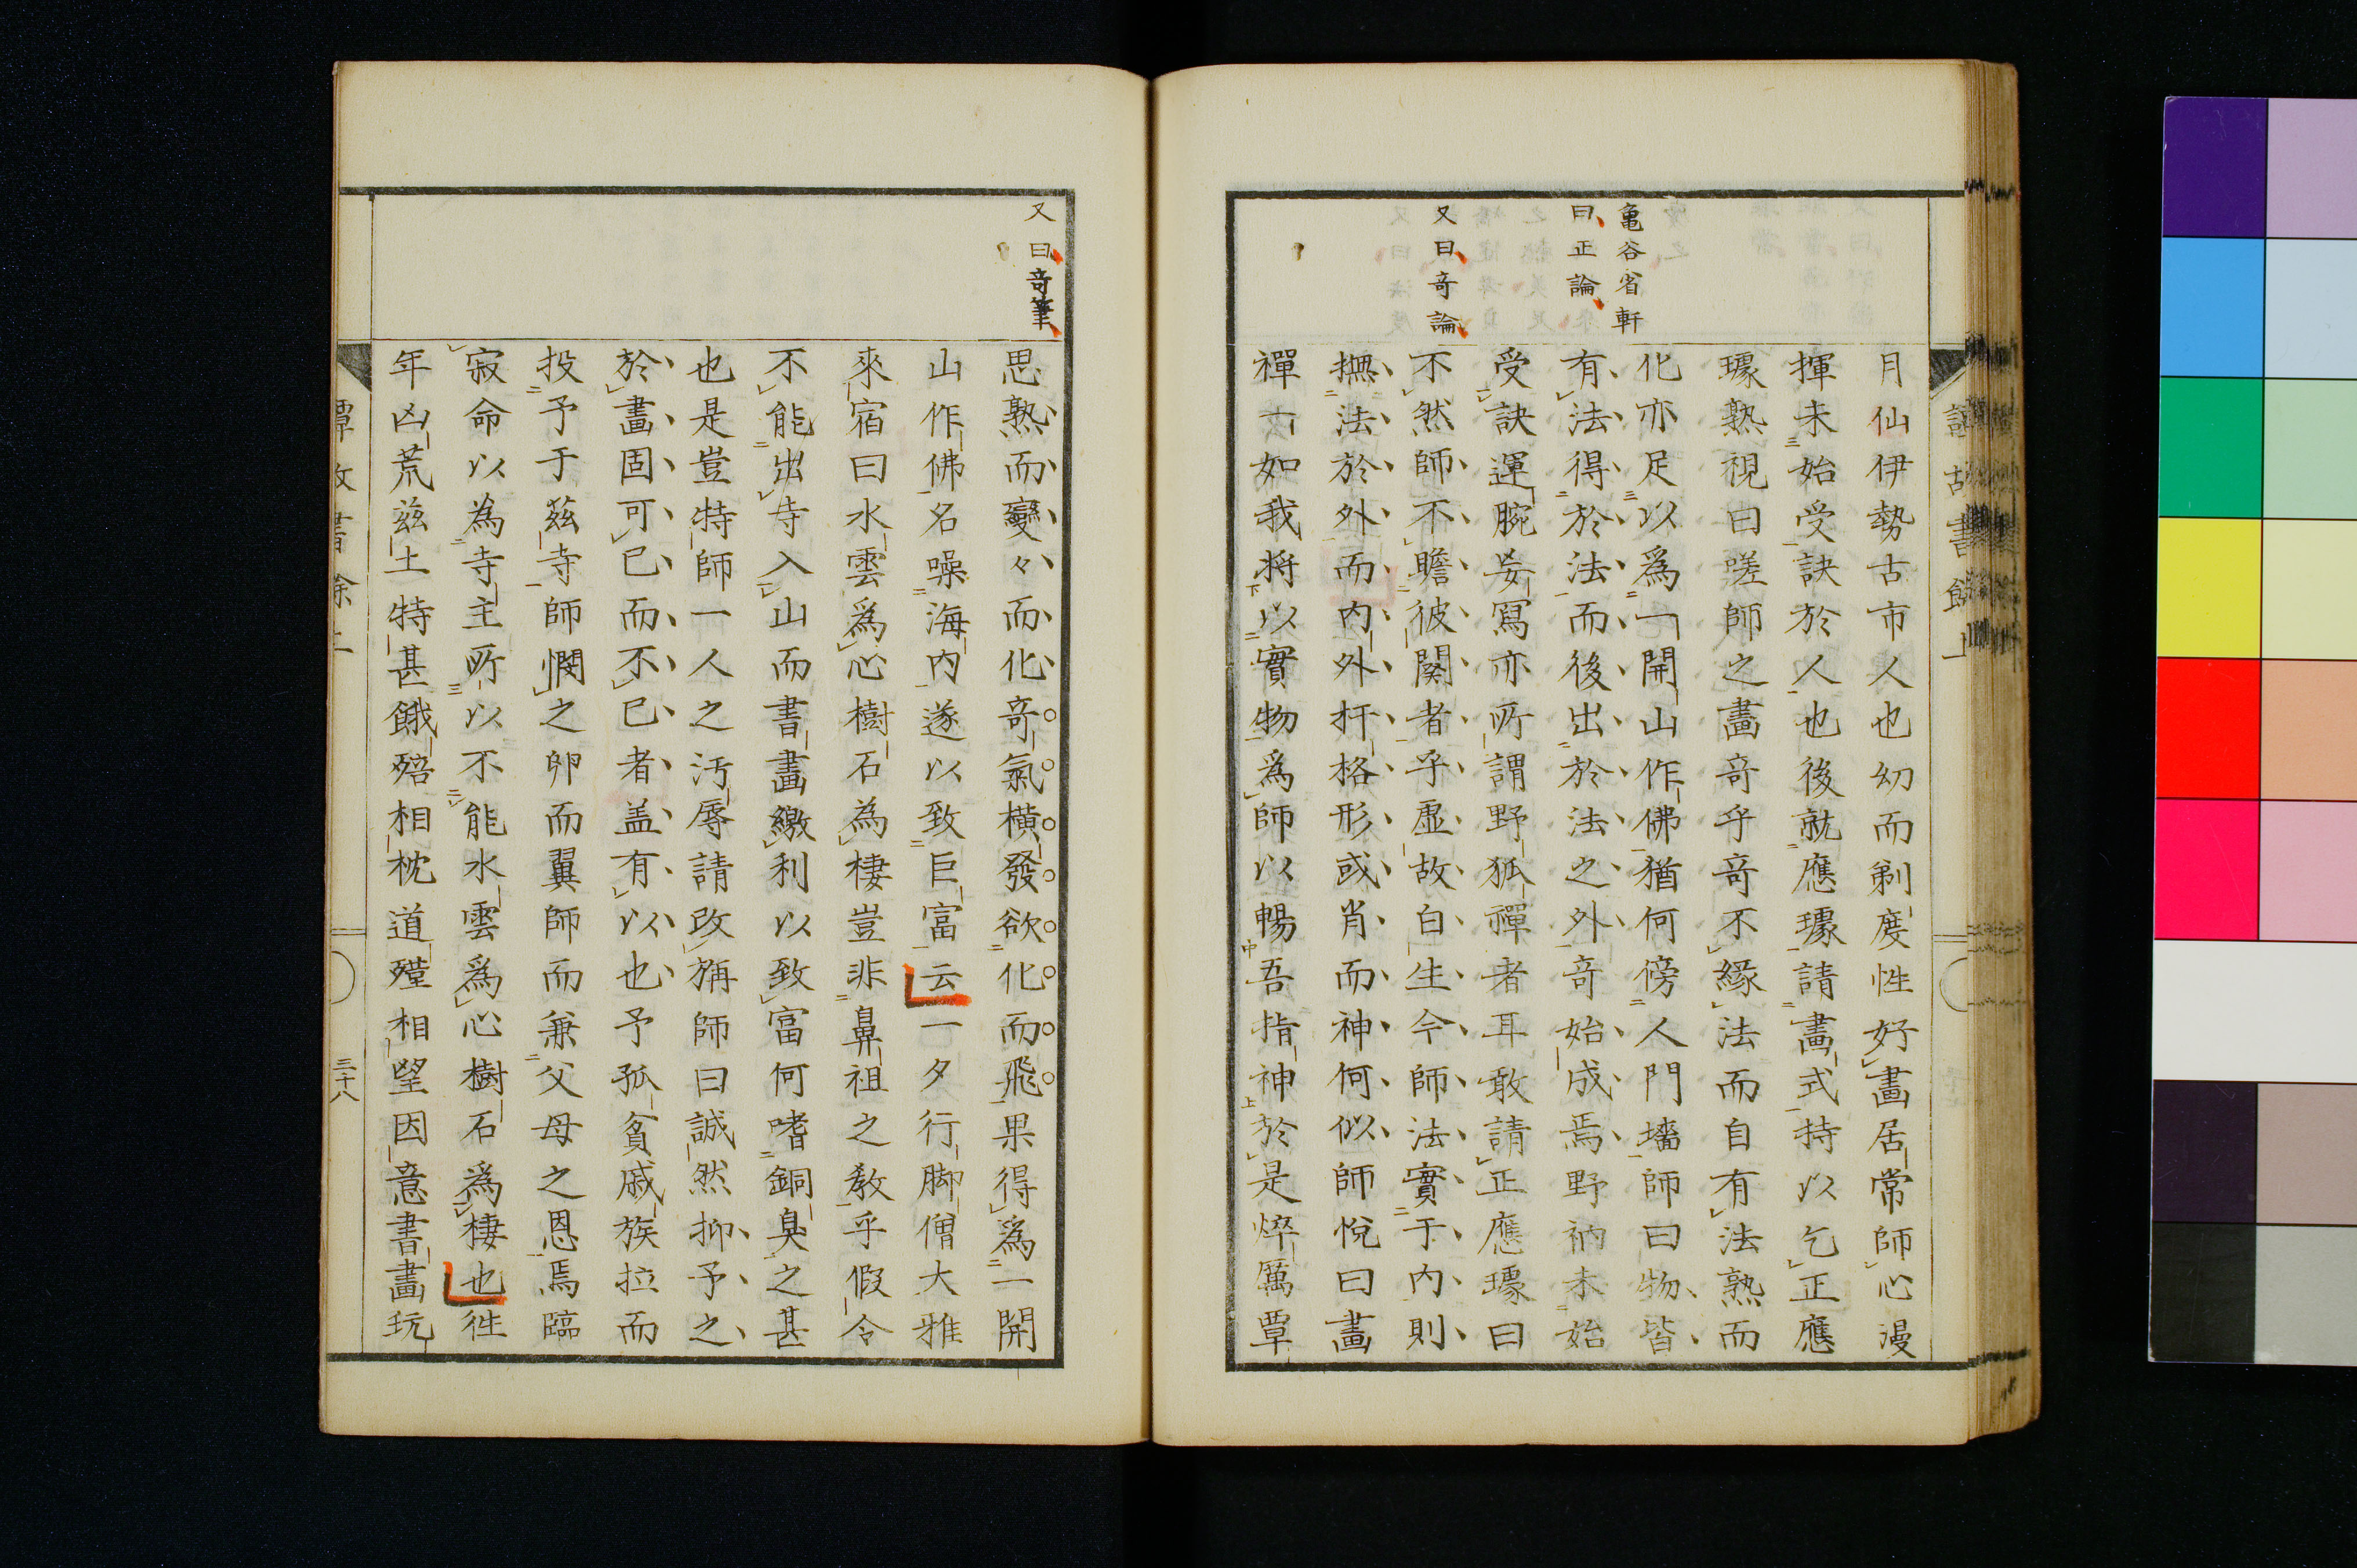 亀谷省軒
曰正論
又曰奇論
月仙伊勢古市人也幼而剃度性好畫居常師心漫
揮未始受訣於人也後就應璩請畫式持以乞正應
璩熟視曰嗟師之畫奇乎奇不緣法而自有法熟而
化亦足以爲一開山作佛猶何傍人門墻師曰物皆
有法得於法而後出於法之外奇始成焉野衲未始
受訣運腕妄寫亦所謂野狐禪者耳敢請正應璩曰
不然師不瞻彼闋者乎虛故白生今師法實于内則
撫法於外而内外扞格形或肖而神何似師悅曰畫
禪一如我將以實物爲師以暢吾指神於是焠厲覃
又曰奇筆
思熟而變々而化奇氣橫發欲化而飛果得爲一開
山作佛名噪海内遂以致巨富云一夕行脚僧大雅
來宿曰水雲爲心樹石為棲豈非鼻祖之教乎假令
不能出寺入山而書畫繳利以致富何嗜銅臭之甚
也是豈特師一人之汚辱請改旃師曰誠然抑予之
於畫固可已而不已者盖有以也予孤貧戚族拉而
投予于茲寺師憫之卵而翼師而兼父母之恩焉臨
寂命以為寺主所以不能水雲爲心樹石爲棲也徃
年凶荒茲土特甚餓殍相枕道殣相望因意書畫玩
三十八